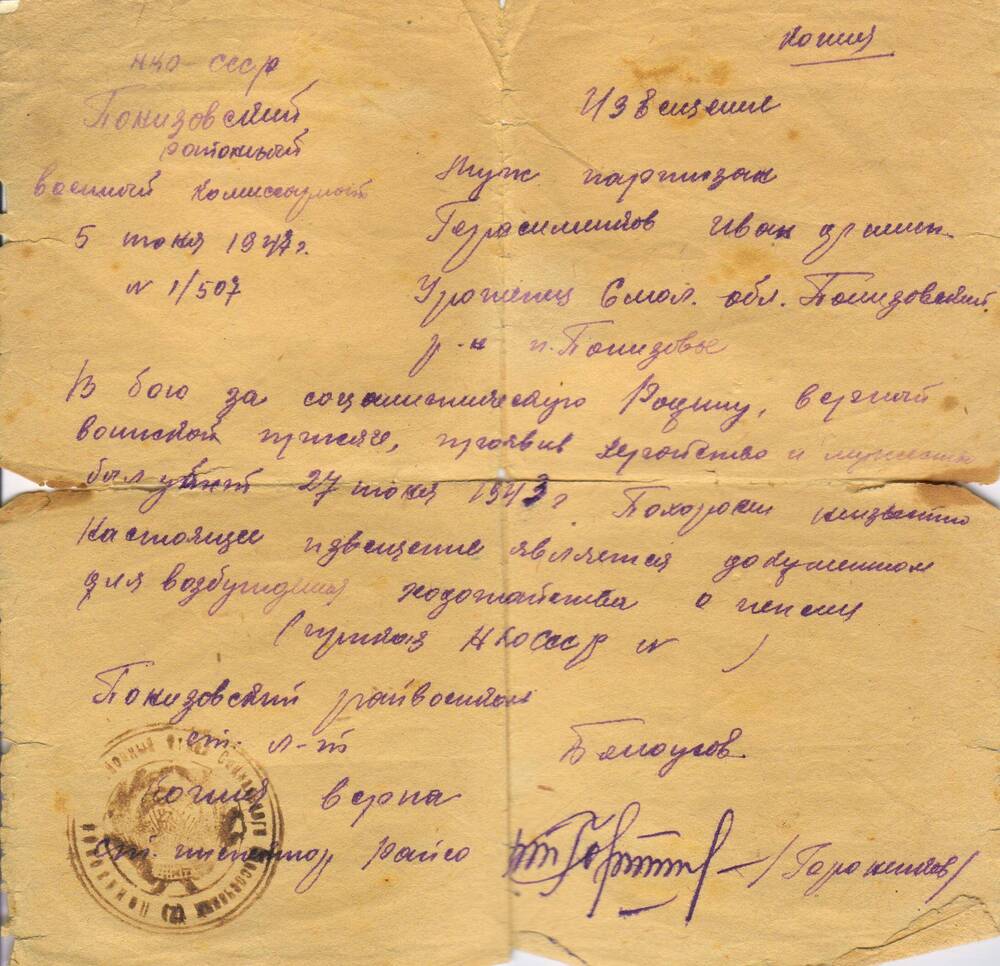 Копия
НКО СССР
Понизовский
районный
военный комиссариат
5 июня 194 г.
N 1/507
Извещение
Муж партизан
Иван
Уроженец Смол. обл. Понизовский
р-н п. Понизовье
В бою за социалистическую Родину, верный
воинской присяге, проявив геройство и мужество
был убит 27 июня 1943 г Похоронен неизвестно
Настоящее извещение является документом
для возбуждения ходотайства о пенсии
(приказ НКОСССР N )
Понизовский райвоенком
ст. л-т
Копия верна
Ст. инспектор Райсо